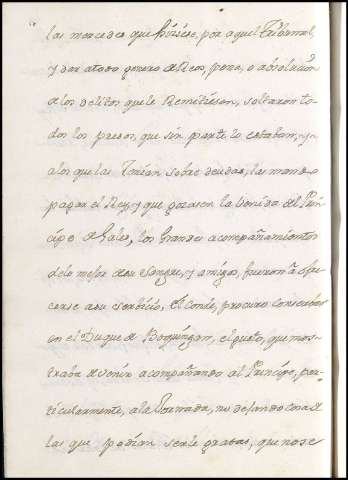 las mercedes que hiziese, por aquel Tribunal,
y dar atodo genero de Reos, pena, o absolucion
a los delitos que le Remitiesen, soltaron to-
dos los presos, que sin parte lo estaban, y
alos que las Tenian sobre deudas, las mando
pagar el Rey, y que gozasen la venida del Prin-
cipe de Gales, los Grandes acompañamientos
delo mejor de su Sangre, y amigos, fueron a ofre-
cerse a su servicio, El Conde, procuro conservar
en el Duque de Boquingan, el gusto, que mos-
traba de venir acompañando al Principe, par-
ticularmente, ala Jornada, no dejando cosa de
las que podian serle gratas, que no se